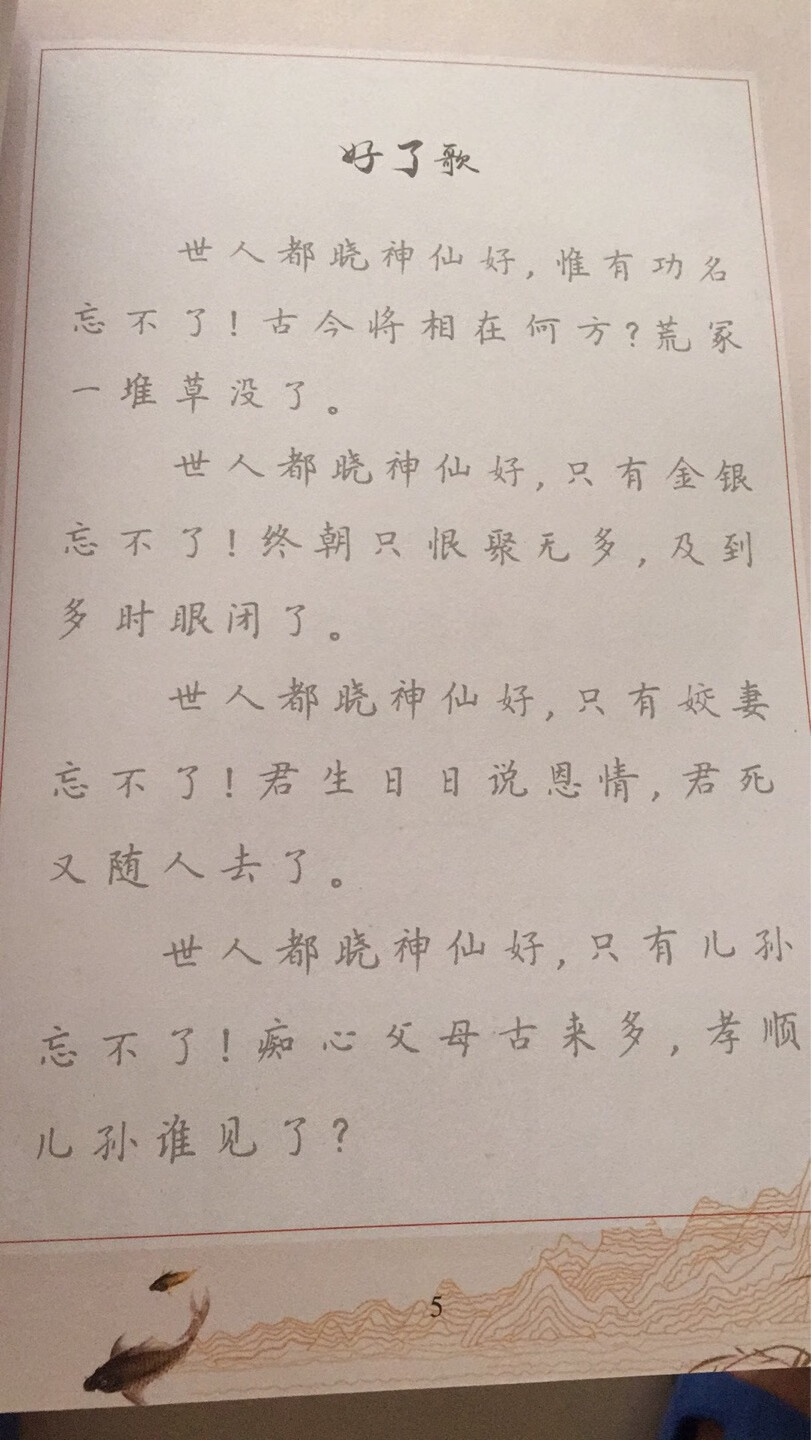 好了歌
世人都晓神仙好,惟有功名
忘不了!古今将相在何方?荒冢
一堆草没了。
世人都晓神仙好,只有金银
忘不了!终朝只恨聚无多,及到
多时眼闭了。
世人都晓神仙好,只有姣妻
忘不了!君生日日说恩情,君死
又随人去了。
世人都晓神仙好,只有儿孙
忘不了!痴心父母古来多,孝顺
儿孙谁见了?
5